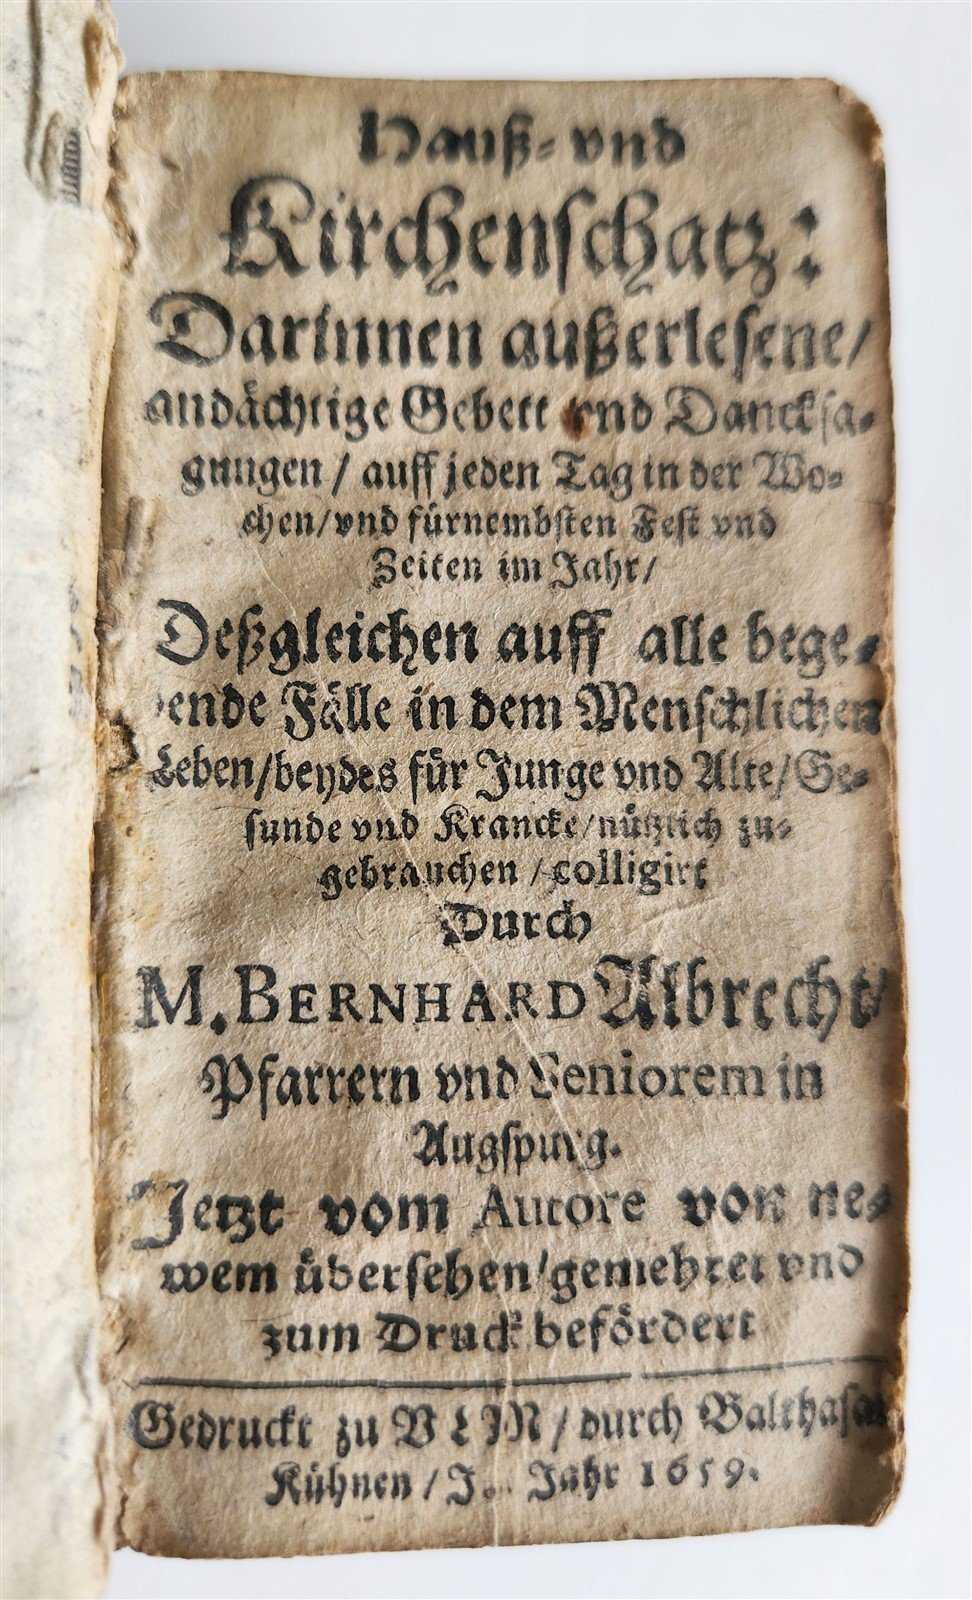 Hauß- vnd
Kirchenschatz:
Darinnen außerlesene/
andächtige Gebett vnd Dancksa-
gungen/ auff jeden Tag in der Wo-
chen/ vnd fürnembsten Fest vnd
Zeiten im Jahr/
Deßgleichen auff alle bege-
bende Fälle in dem Menschlichen
Leben/ beydes für Junge vnd Alte/ Ge-
sunde vnd Krancke/ nützlich zu-
gebrauchen/ colligirt
Durch
M. BERNHARD Albrecht/
Pfarrern vnd Seniorem in
Augspurg.
Jetzt vom Autore von ne-
wem übersehen/ gemehret vnd
zum Druck befördert
Gedruckt zu VLM/ durch Balthasar
Kühnen/ Im Jahr 1659.